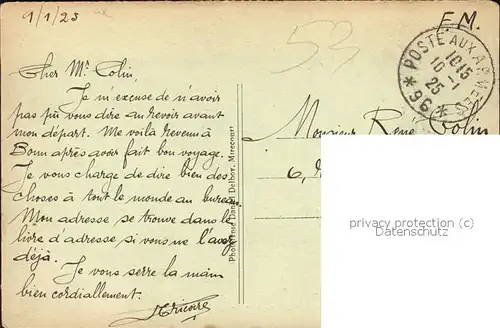 9/1/25
F.M.
53
POSTE AUX ARMEES
1015
10-1
25
* 96 *
Cher Mr Colin,
Je m'excuse de n'avoir
pas pu vous dire au revoir avant
mon départ. Me voilà revenu à
Bonn après avoir fait bon voyage.
Je vous charge de dire bien des
choses à tout le monde au bureau.
Mon adresse se trouve dans le
livre d'adresse si vous ne l'avez
déjà.
Je vous serre la main
bien cordiallement.
Monsieur René Colin
6,
Daniel Delboy, Mirecourt
privacy protection (c)
Datenschutz